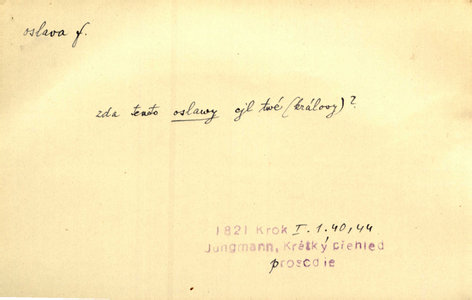 oslava f.
zda tento oslawy cjl twé (králowy)?
1821 Krok I.1.40,44
Jungmann, Krátký přehled
prosodie